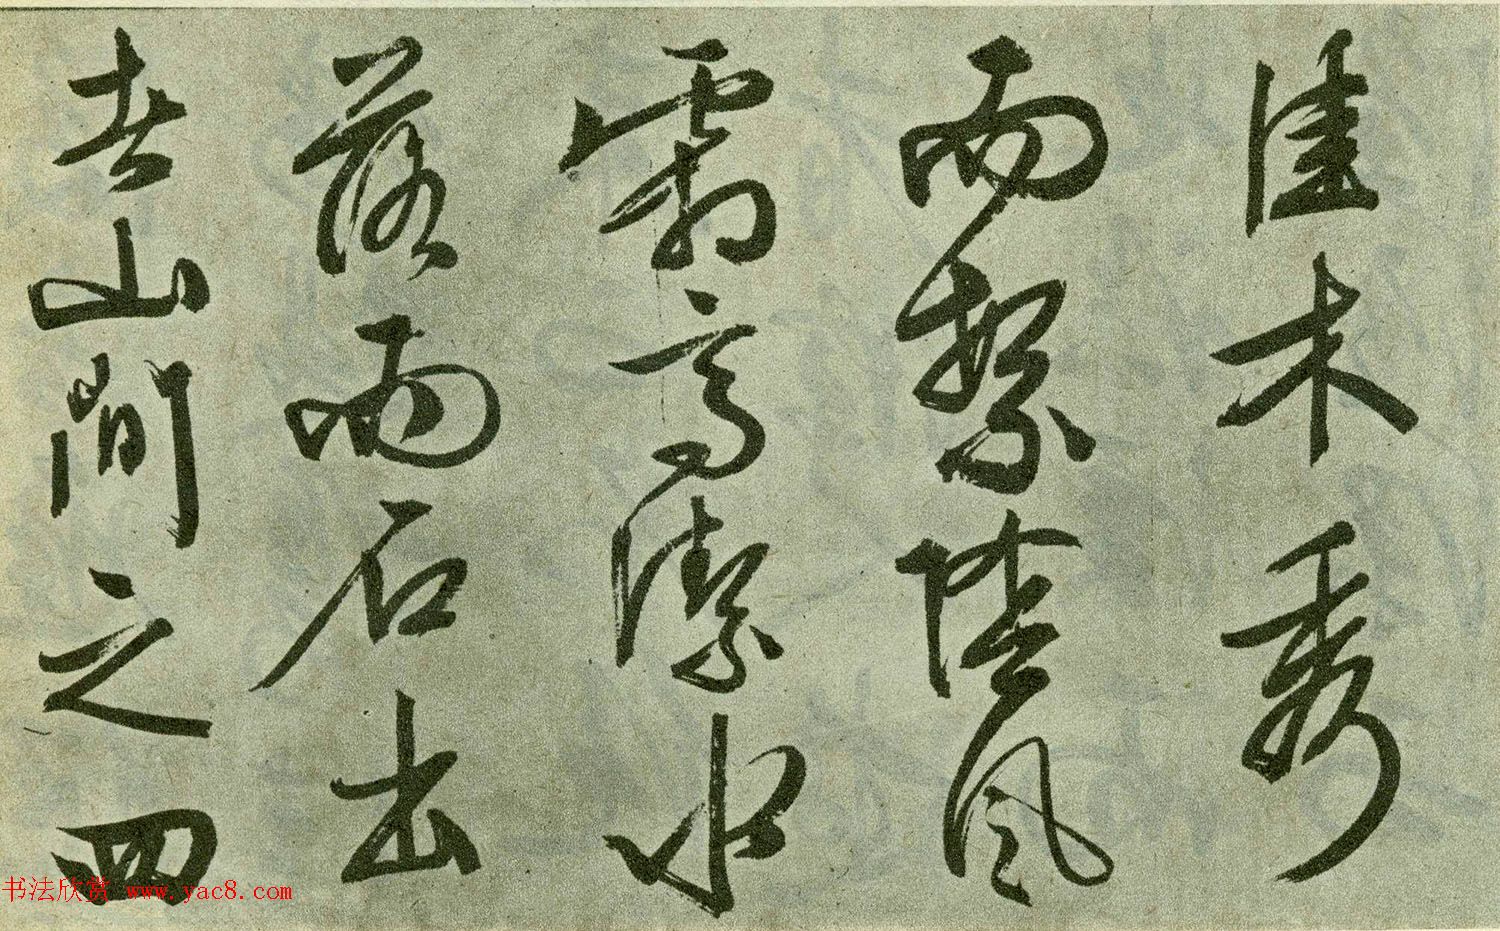 佳木秀
而繁陰風
霜高潔水
落而石出
者山間之四
书法欣赏 www.yac8.com